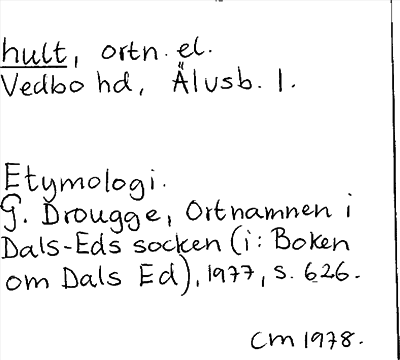 hult, ortn. el.
Vedbo hd, Älvsb. l.
Etymologi.
G. Drougge, Ortnamnen i
Dals-Eds socken (i: Boken
om Dals Ed), 1977, s. 626.
CM 1978.